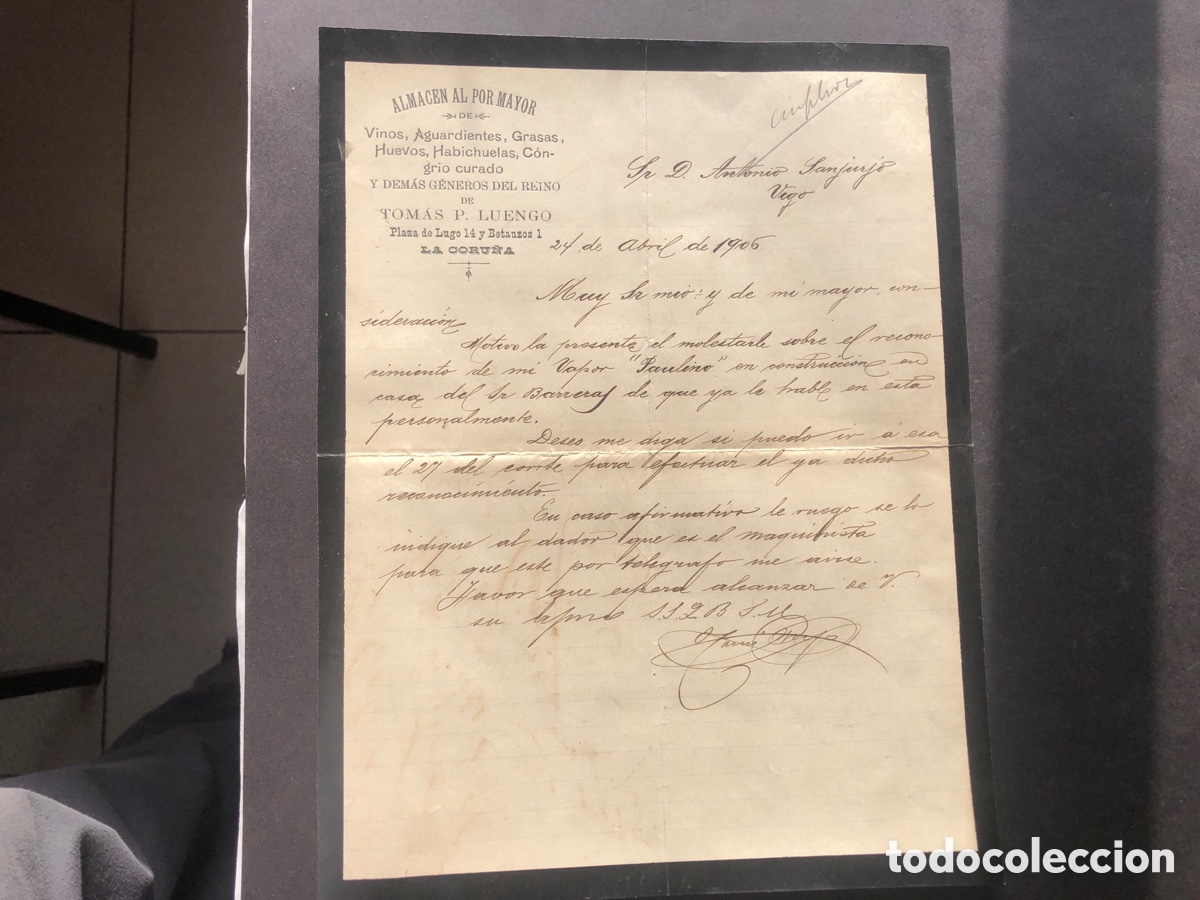 ALMACEN AL POR MAYOR
DE
Vinos, Aguardientes, Grasas,
Huevos, Habichuelas, Cón-
grio curado
Y DEMÁS GÉNEROS DEL REINO
DE
TOMÁS P. LUENGO
Plaza de Lugo 14 y Betanzos 1
LA CORUÑA
Sr D. Antonio Sanjurjo
Vigo
24 de abril de 1906
Muy Sr mio: y de mi mayor con-
sideración
Motivo la presente el molestarle sobre el recono-
cimiento de mi Vapor "Paulino" en construcción en
casa del Sr Barreras de que ya le hablé en esta
personalmente.
Deseo me diga si puedo ir á esa
el 27 del corrte para efectuar el ya dicho
reconocimiento.
En caso afirmativo le ruego se lo
indique al dador que es el maquinista
para que este por telegrafo me avise.
Favor que espera alcanzar de V.
su S.S.Q B S.M
todocoleccion